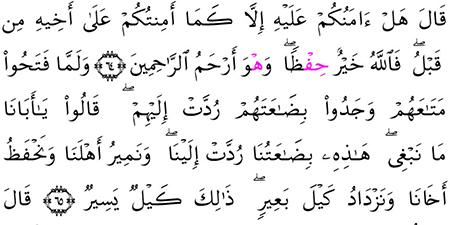 قَالَ هَلْ ءَامَنُكُمْ عَلَيْهِ إِلَّا كَمَا أَمِنتُكُمْ عَلَىٰ أَخِيهِ مِن
قَبْلُ ۖ فَاللَّهُ خَيْرٌ حِفْظًا ۖ وَهْوَ أَرْحَمُ الرَّٰحِمِينَ ﴿٦٤﴾ وَلَمَّا فَتَحُوا۟
مَتَـٰعَهُمْ وَجَدُوا۟ بِضَـٰعَتَهُمْ رُدَّتْ إِلَيْهِمْ ۖ قَالُوا۟ يَـٰأَبَانَا
مَا نَبْغِى ۖ هَـٰذِهِۦ بِضَـٰعَتُنَا رُدَّتْ إِلَيْنَا ۖ وَنَمِيرُ أَهْلَنَا وَنَحْفَظُ
أَخَانَا وَنَزْدَادُ كَيْلَ بَعِيرٍ ۖ ذَٰلِكَ كَيْلٌ يَسِيرٌ ﴿٦٥﴾ قَالَ